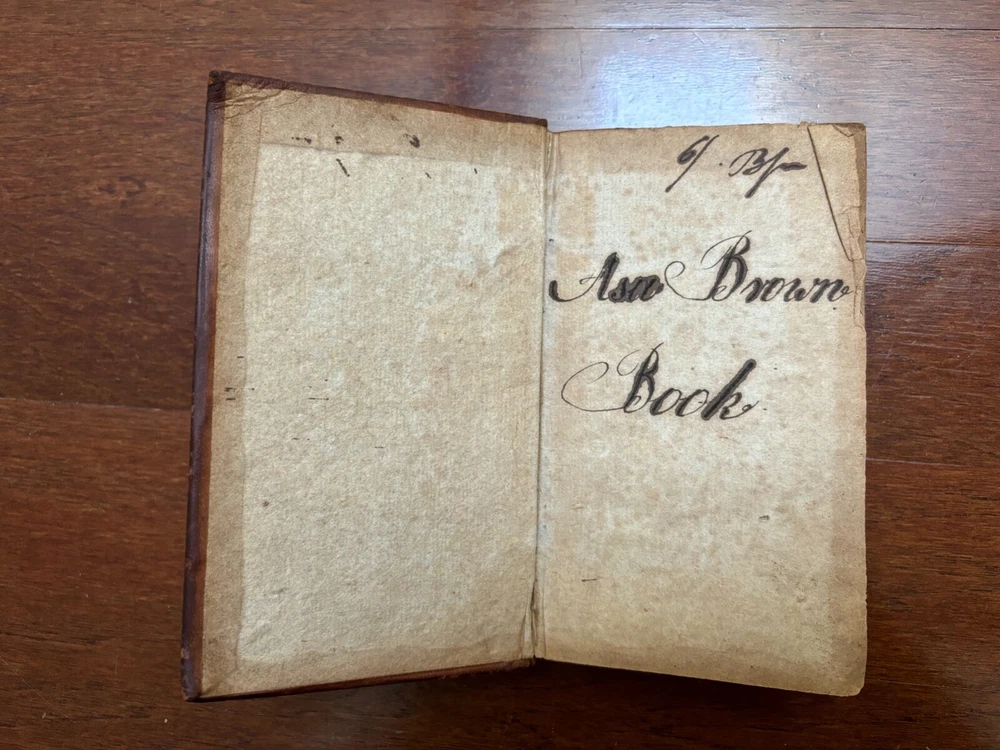 6/.
Asa Brown
Book